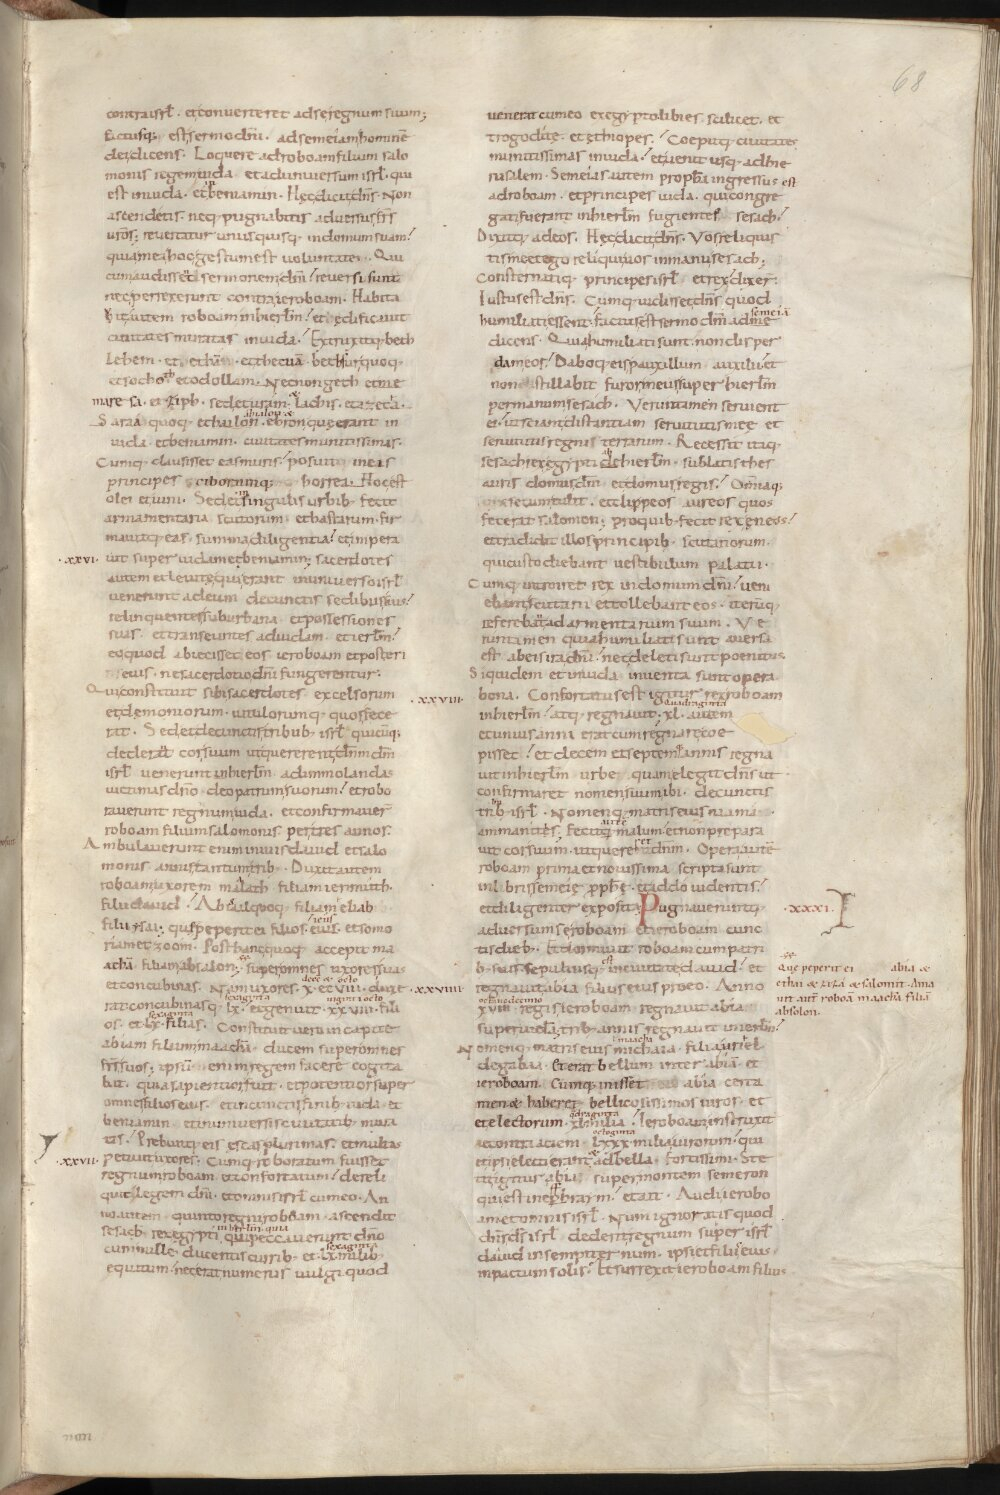 68
contra isrl. et converteret ad se regnum suum;
Factusq; est sermo dni. ad semeiam hominē
dei dicens. Loquere ad roboam filium salo
monis regem iuda et ad universum isrl. qui
est in iuda. et beniamin. Hęc dicit dns. Non
ascendetis neq; pugnabitis adversus frs
vros; revertatur unusquisq; in domum suam.
quia mea hoc gestum est voluntate. Qui
cum audissēt sermonem dni. reversi sunt
nec perrexerunt contra ieroboam. Habita
vit autem roboam in hierlm. et ędificavit
civitates muratas in iuda. Extruxitq; beth
lehem. et ethā. et thecuā. bethsur quoq;
et socho et odollam. Necnon geth et me
maresa. et ziph. sed et uram. lachis. et azeca.
Saraa quoq; et hailon. ebron que erant in
iuda et beniamin. civitates munitissimas.
Cumq; clausisset eas muris. posuit in eis
principes ciborumq; horrea. Hoc est
olei et vini. Sed et in singulis urbib; fecit
armamentaria scutorum. et hastarum. fir
mavitq; eas summa diligentia. et impera
·xxvi· vit super iudam et beniamin; sacerdotes
autem et levite qui erant in universo isrl
venerunt ad eum de cunctis sedibus suis.
relinquentes suburbana et possessiones
suas. et transeuntes ad iudam. et ierlm.
eo quod abiecisset eos ieroboam et posteri
eius. ne sacerdotio dni fungerentur.
Qui constituit sibi sacerdotes excelsorum
et demoniorum. vitulorumq; quos fece
rat. Sed et de cunctis tribub; isrl. quicūq;
dederāt cor suum ut quererent dnm dm
isrl. venerunt in hierlm. ad immolandas
victimas dno deo patrum suorum. et robo
raverunt regnum iuda. et confirmaver̄
roboam filium salomonis per tres annos.
Ambulaverunt enim in viis david et salo
monis annis tantum trib; Duxit autem
roboam uxorem malath filiam ierimuth.
filii david. Abiail quoq; filiam eliab
filii isai; que peperit ei filios. eius. et somo
riam et zoom. Post hanc quoq; accepit ma
achā filiam absalon;
super omnes uxores suas
et concubinas. Nam uxores. x. et viii. duxe
decē & octo
rat concubinasq; lx. et genuit. xxviii. fili
sexaginta viginti octo
os. et lx. filias. Constituit vero in capite
sexaginta
abiam filium maachā. ducem super omnes
frs suos; ipsū enim regem facere cogita
bat. quia sapientior fuit. et potentior super
omnes filios eius. et in cunctis finib; iuda. et
beniamin. et in universis civitatib; mura
tis. Prebuitq; eis escas plurimas. et multas
·xxvii· petivit uxores. Cumq; roboratum fuisset
regnum roboam et confortatum. dereli
quit legem dni. et omnis isrl cum eo. An
no autem quinto regni roboam. ascendit
sesach rex egypti. qui peccaverunt dno
in hierlm quia
cum mille ducentis currib; et. lx. milib;
sexaginta
equitum. nec erat numerus vulgi quod
venerat cum eo ex egypto libies. scilicet. et
trogodite. et ethiopes. Coepitq; civitates
munitissimas in iuda. et venit usq; ad hie
rusalem. Semeias autem propheta ingressus est
ad roboam. et principes iuda. qui congre
gati fuerant in hierlm fugientes sesach.
Dixitq; ad eos. Hęc dicit dns. Vos reliquis
tis me et ego reliqui vos in manu sesach;
Consternatiq; principes isrl. et rex dixer̄.
Iustus est dns. Cumq; vidisset dns quod
humiliati essent. factus est sermo dni ad
semeiā
dicens. Quia humiliati sunt. non disper
dam eos. Daboq; eis pauxillum auxilii. et
non stillabit furor meus super hierlm
per manum sesach. Verumtamen servient
ei. ut sciant distantiam servitutis mee et
servitutis regni terrarum. Recessit itaq;
sesach rex egypti ab hierlm. sublatis thes
auris domus dni. et domus regis. Omniaq;
secum tulit. et clippeos aureos quos
fecerat salomon; pro quib; fecit rex eneos.
et tradidit illos principib; scutariorum.
qui custodiebant vestibulum palatii.
Cumq; introiret rex in domum dni. veni
ebant scutarii et tollebant eos. iterūq;
referebāt ad armentarium suum. Ve
runtamen quia humiliati sunt aversa
est ab eis ira dni. nec deleti sunt poenitus.
Siquidem et in iuda inventa sunt opera
·xxviii· bona. Confortatus est igitur rex roboam
in hierlm. atq; regnavit. xl. autem
quadraginta
et unius anni erat cum regnare coe
pisset. et decem et septem annis regna
vit in hierlm urbe quam elegit dns ut
confirmaret nomen suum ibi. de cunctis
trib; isrl. Nomenq; matris eius naama
ammanites. Fecitq; malum. et non prepara
vit cor suum. ut quereret dnm. Opera autē
roboam prima et novissima scripta sunt
in libris semeię pphę. et addo videntis.
·xxxi· et diligenter exposita. Pugnaveruntq;
adversum se roboam et ieroboam cunc
tis dieb; Et dormivit roboam cum patri
b; suis. sepultusq; est in civitate david. et
regnavit abia filius eius pro eo. Anno
octavodecimo
·xxviiii· xviii. regis ieroboam regnavit abia
super iudā. trib; annis regnavit in ierlm.
Nomenq; matris eius michaia. filia uriel
maacha
de gabaa. Et erat bellum inter abiā. et
ieroboam. Cumq; inisset abia certa
men & haberet bellicosissimos viros. et
electorum. xl. milia. Ieroboam instruxit
qdraginta
e contra aciem. lxxx. milia virorum. qui
octoginta
et ipsi electi erant. ad bella fortissimi. Ste
tit igitur abia super montem semeron
qui est in ephraim. et ait. Audi ierobo
am et omnis isrl. Num ignoratis quod
dns ds isrl. dederit regnum super isrl
david in sempiternum. ipsi et filiis eius.
in pactum solis. Et surrexit ieroboam filius
Que peperit ei abia &
ethai & ziza & salomit. Ama
vit aut roboā maachā filiā
absolon.